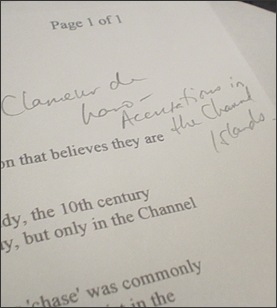 Page 1 of 1
Clameur de
haro –
Accusations in
the Channel
Islands.
on that believes they are
dy, the 10th century
y, but only in the Channel
'chase' was commonly
in the